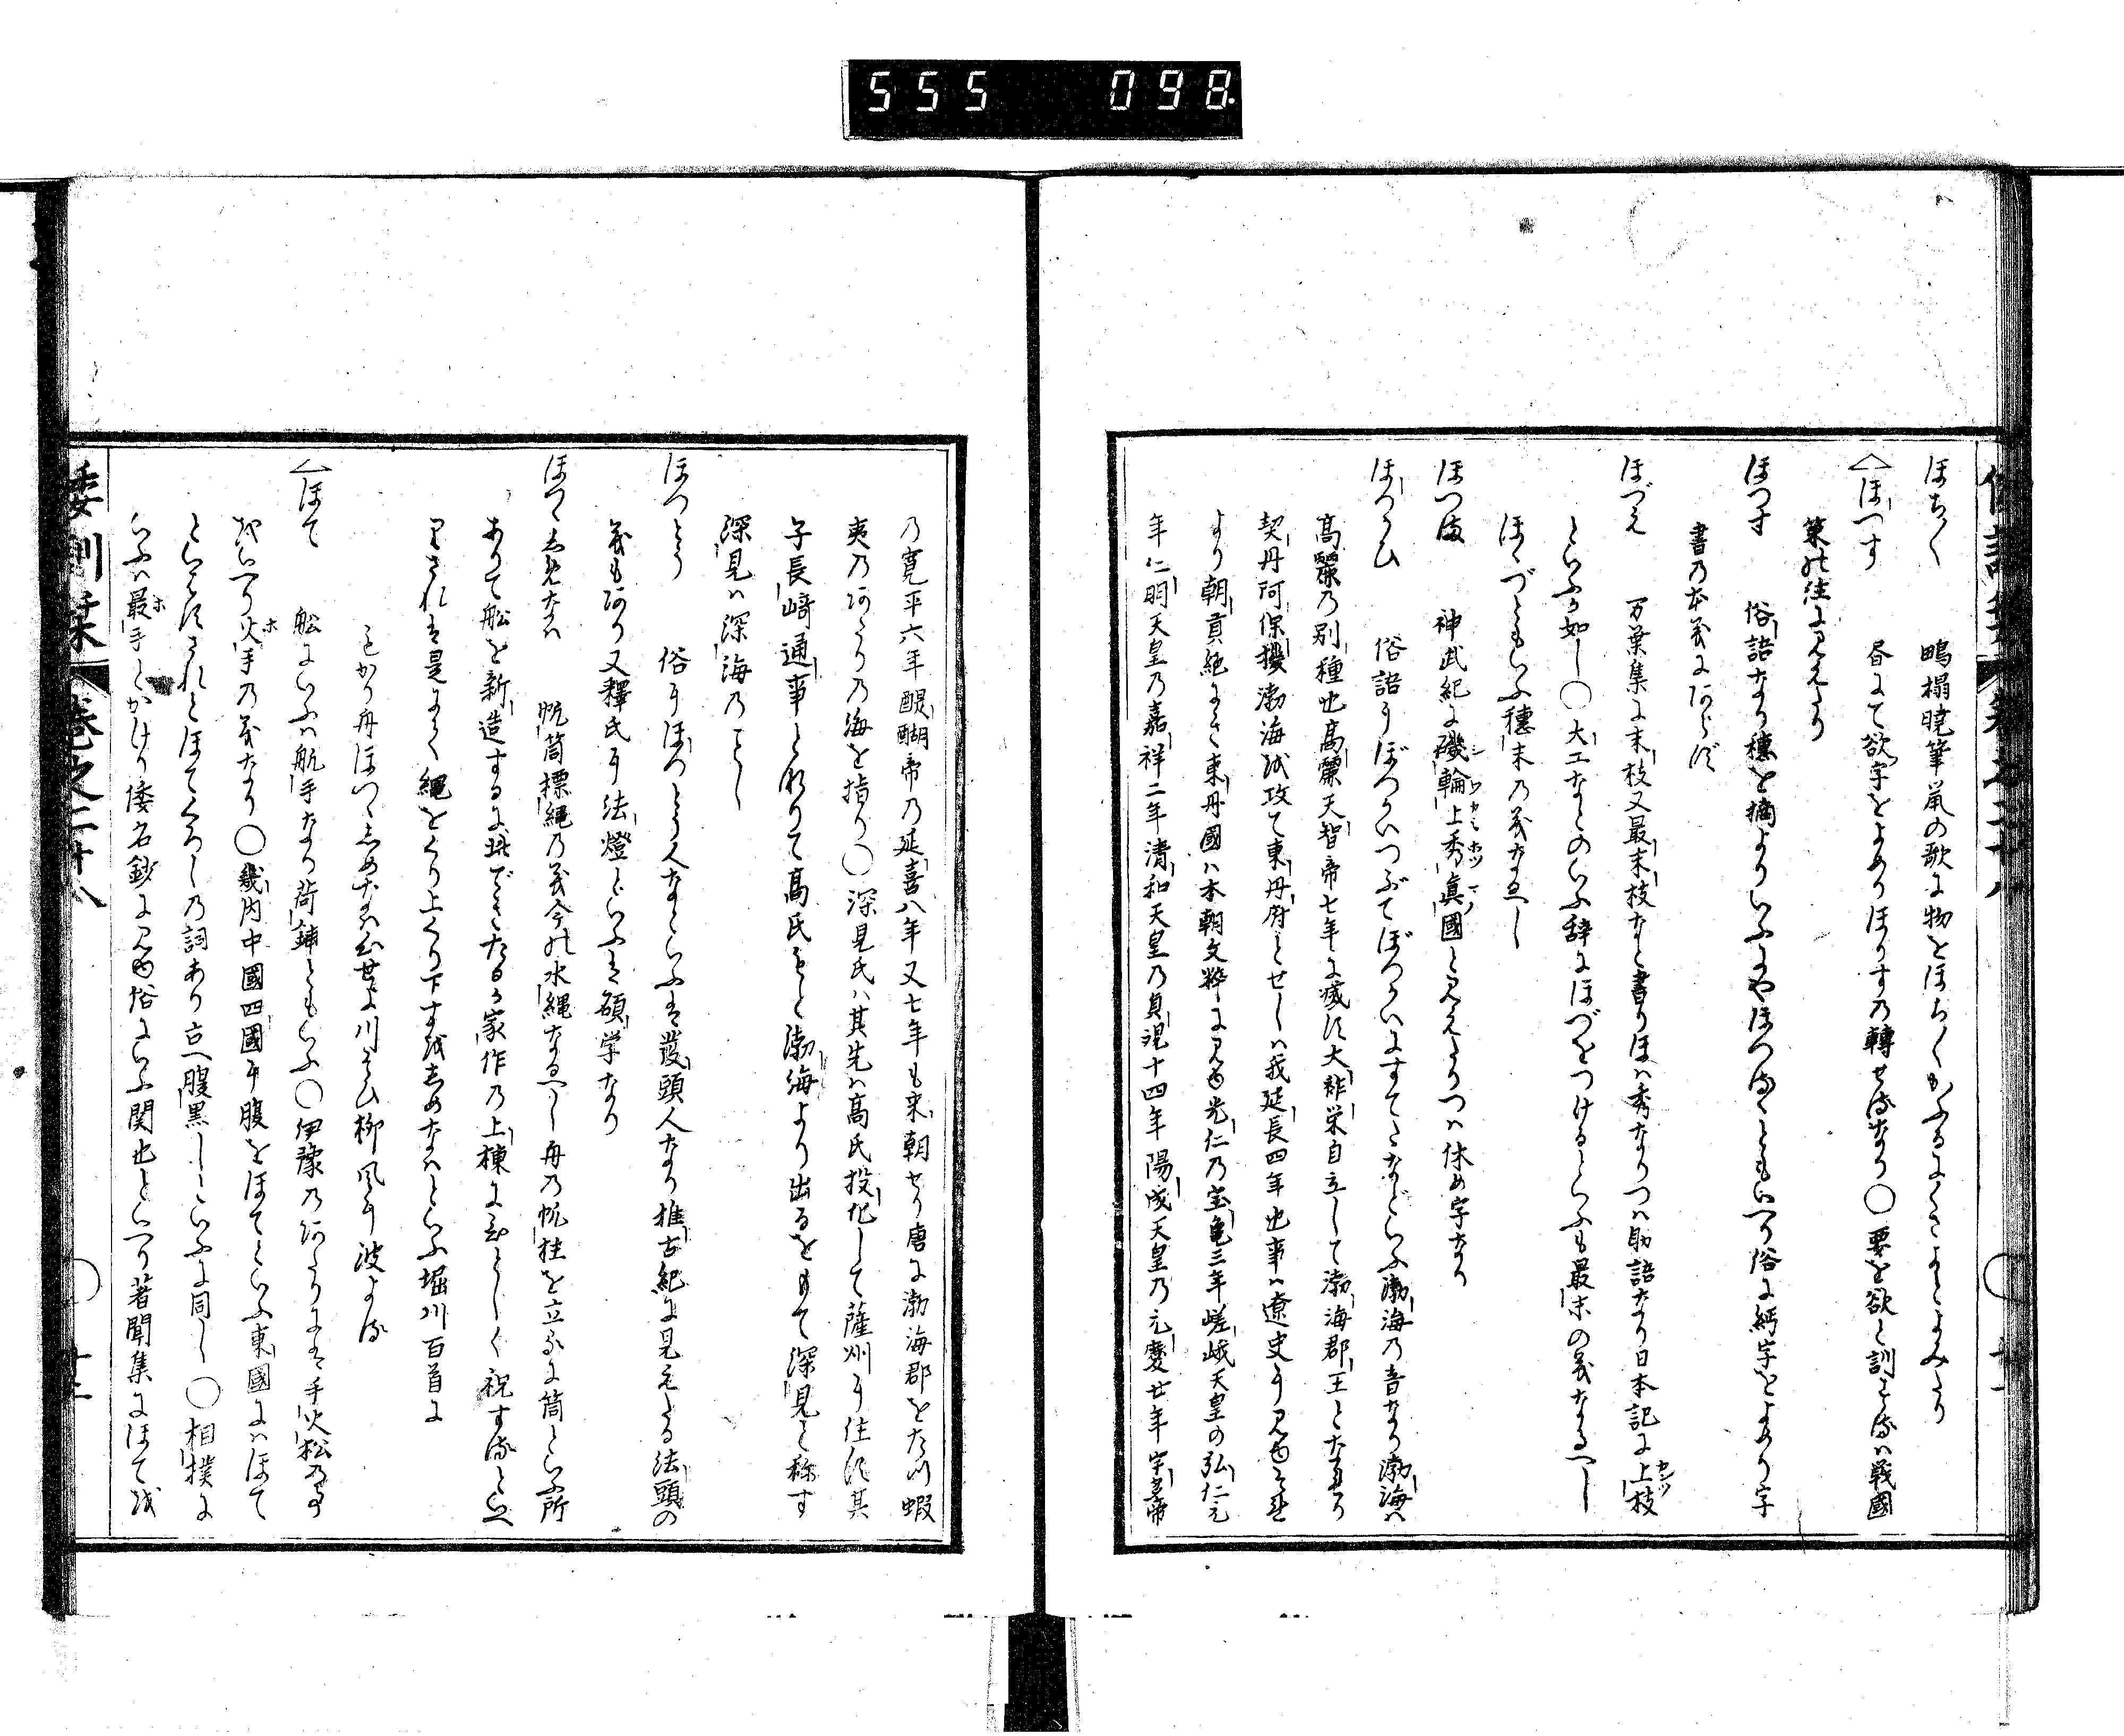 555 098.
ほち〳〵 鴫搨暁筆鼠の歌に物をほち〳〵かふるにくさよとよみたり
△ほつす 昏にて欲字をよめりほりすの轉せる也なり〇要を欲と訓せるは戦國
策の注に見えたり
ほつす 俗語なり穂を摘よりいふにやほつるともいへり俗に縒字をよめり字
書の本義にあらず
ほづえ 万葉集に末枝又最末枝なと書りほは秀なりつは助語なり日本記に上枝
といふか如し〇大工なとのいふ辞にほづをつけるといふも最末の義なるへし
ほくづともいふ穂末の義なるへし
ほつま 神武紀に磯輪上秀真國と見えたりつは休め字なり
ぼつかひ 俗語にぼつかいつぶてぼつかいにすてたなどいふ渤海の音なり渤海は
高麗の別種也高麗天智帝七年に滅す大祚栄自立して渤海郡王となれり
契丹阿保機渤海を攻て東丹府とせしは我延長四年也事は遼史に見ゆ
より朝貢絶にき東丹國は本朝文粋に見ゆ光仁の宝亀三年嵯峨天皇の弘仁元
年仁明天皇の嘉祥二年清和天皇の貞観十四年陽成天皇の元慶廿年宇多帝
の寛平六年醍醐帝の延喜八年又七年も来朝せり唐に渤海郡をたつ蝦
夷のあたりの海を指り〇深見氏は其先は高氏投化して薩州に住す其
子長﨑通事となりて高氏もと渤海より出るをもて深見と称す
深見は深海のことし
ほつとう 俗にほつとう人なといふは發頭人なり推古紀に見えたる法頭の
義もあり又釋氏に法燈といふは碩学なり
ほつゝしめなは 帆筒標縄の義今の水縄なるへし舟の帆柱を立るに筒といふ所
ありて船を新造するに此できたるか家作の上棟にひとしく祝する也といへ
りされは是によく縄をくり上くり下すをしめなはといふ堀川百首に
もかり舟ほつゝしめなは心せよ川そひ柳風に波よる
△ほて 船にいふは航手なり荷鋪ともいふ〇伊豫のあたりには手火松の事
をいへり火手の義なり〇畿内中國四國に腹をほてといふ東國にはほて
といはすされとほてくろしの詞あり古へ腹黒しといふに同し〇相撲に
いふは最手とかけり倭名鈔に見ゆ俗にいふ関也といへり著聞集にほてを
倭訓栞 巻之二十八